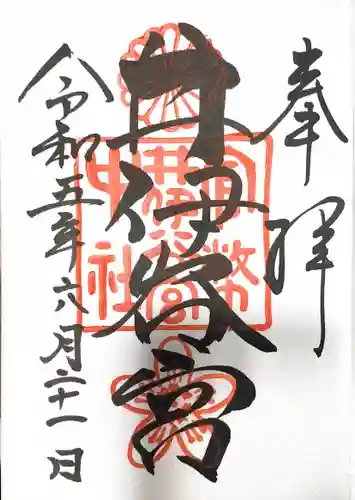 奉拝
井伊谷宮
官幣
井伊谷宮
中社
令和五年六月二十一日